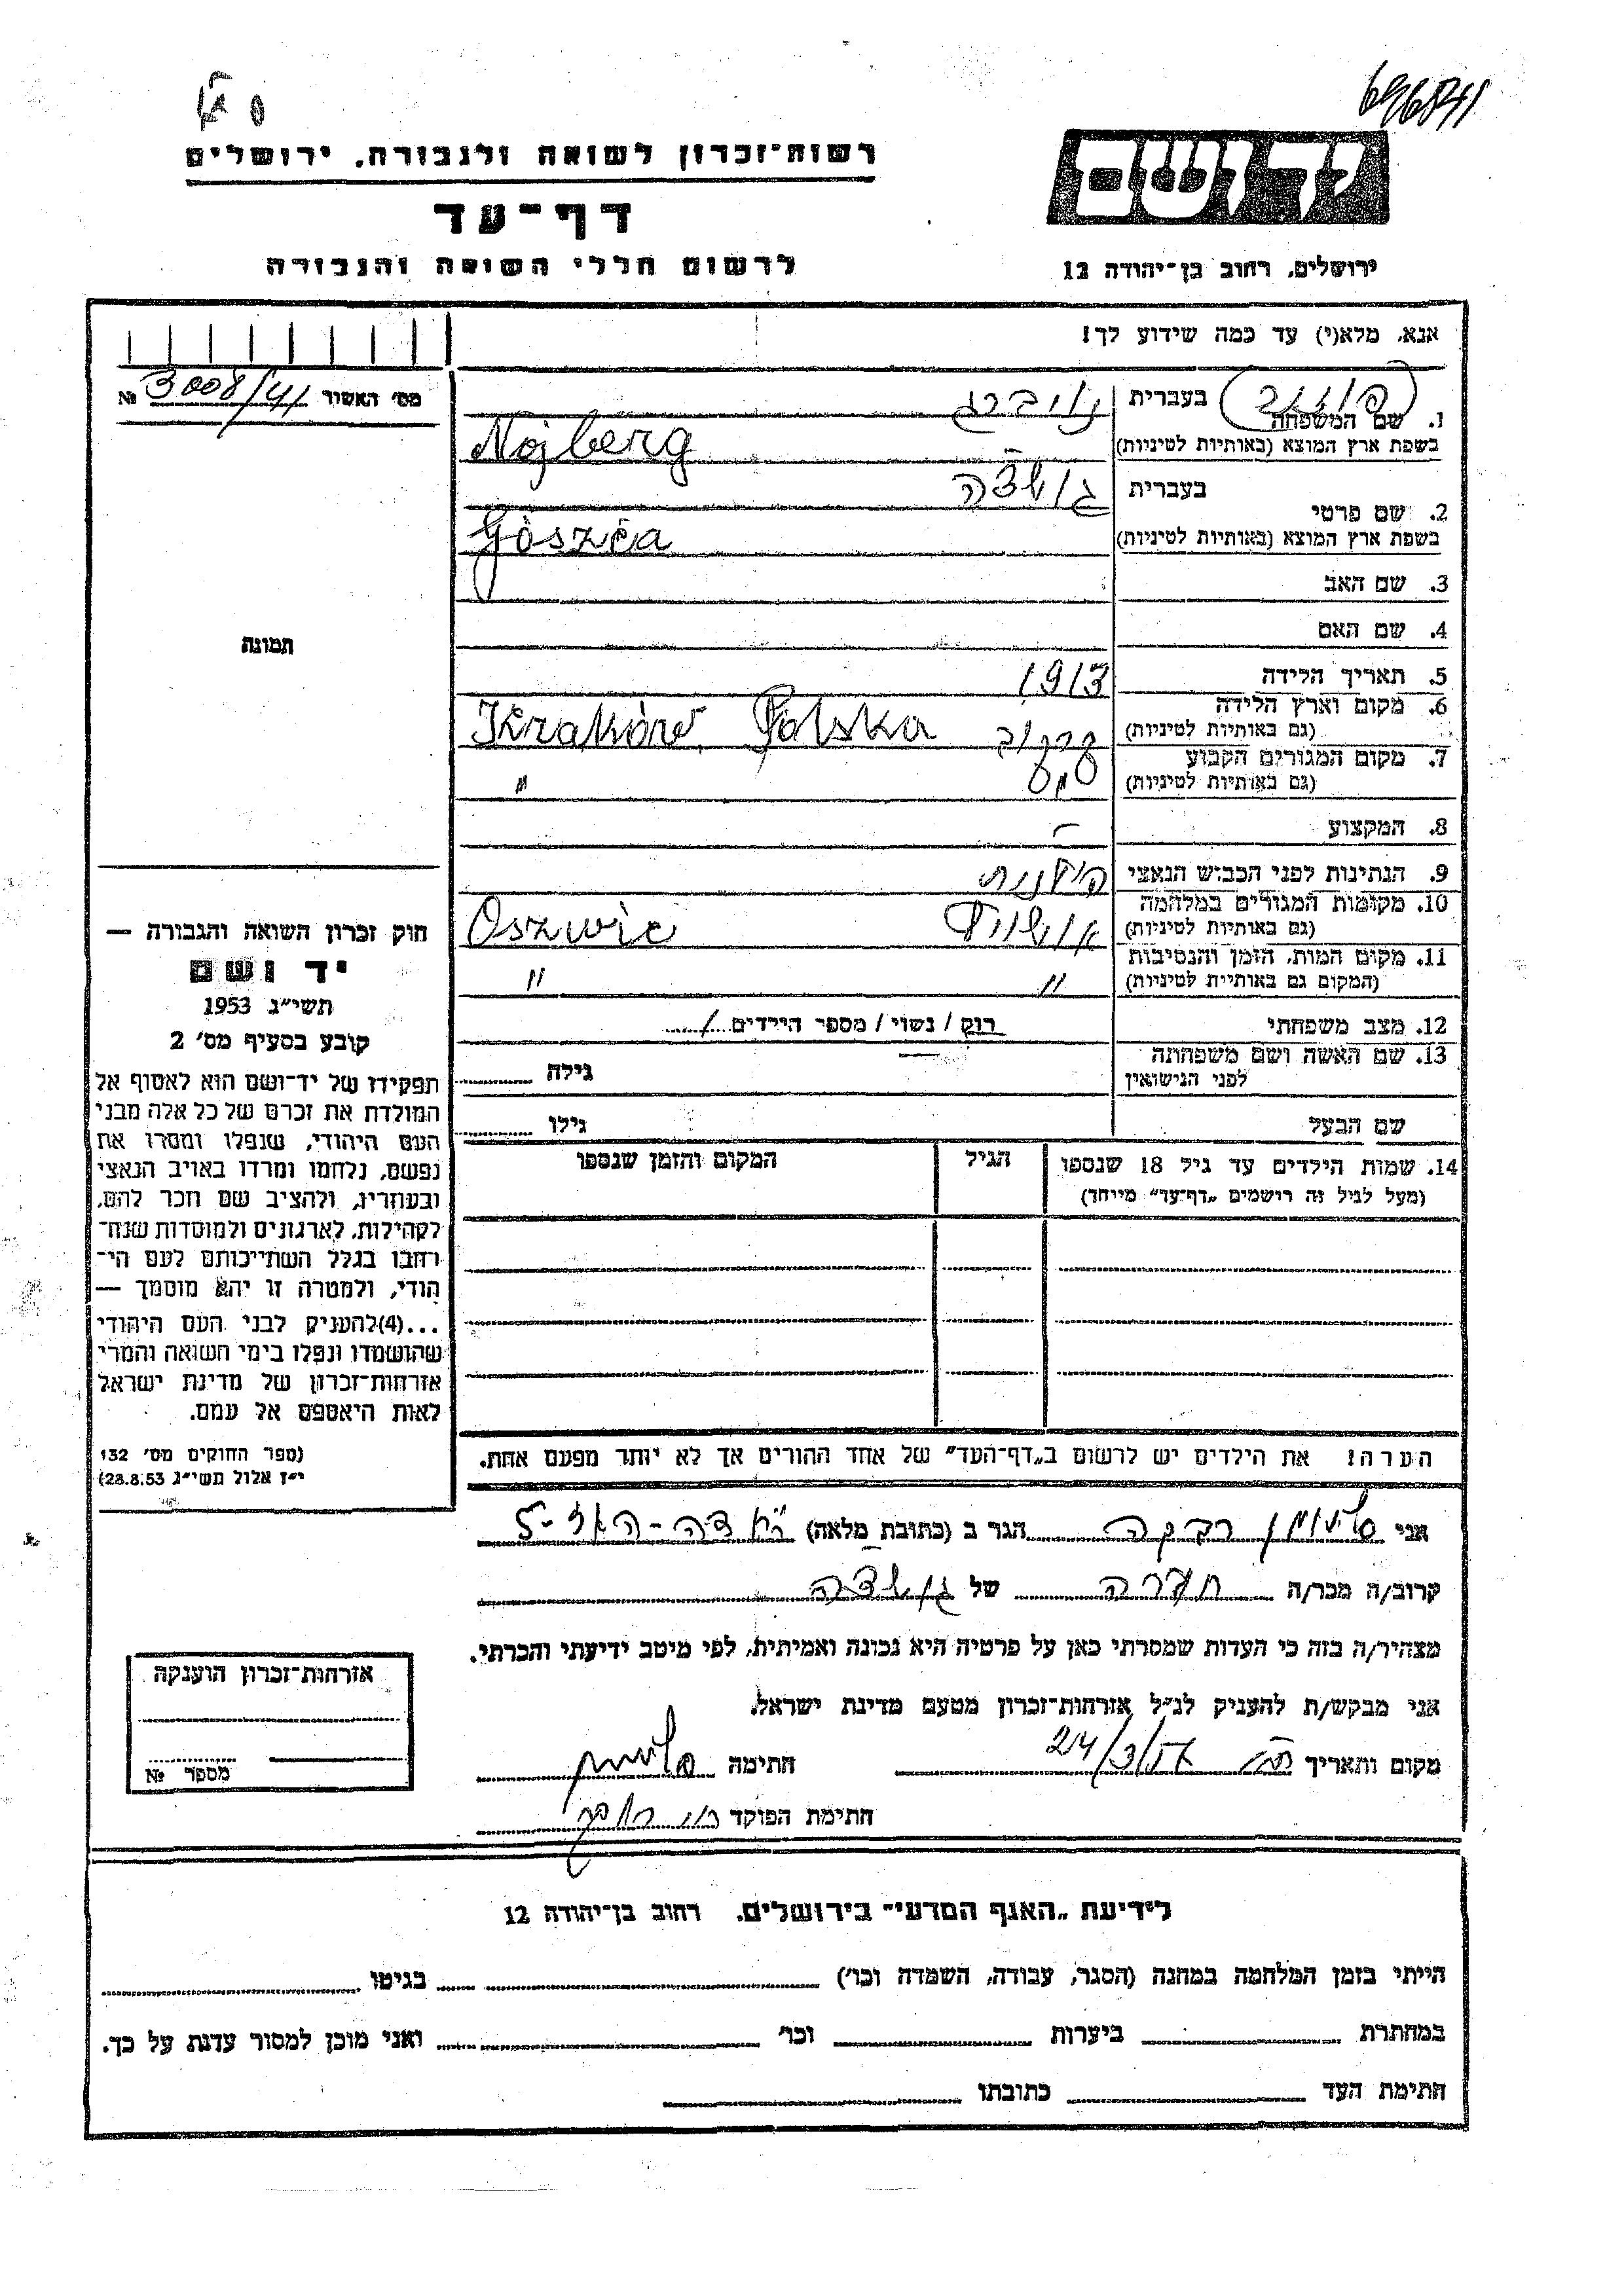 696541
רשות־זכרון לשואה ולגבורה. ירושלים
דף־עד
לרשום חללי השואה והגבורה
יד ושם
ירושלים, רחוב בן־יהודה 12
אנא, מלא(י) עד כמה שידוע לך!
מס׳ האשור 3008/41 №
1. שם המשפחה בעברית נויברג
בשפת ארץ המוצא (באותיות לטיניות) Nojberg
2. שם פרטי בעברית גושצה
בשפת ארץ המוצא (באותיות לטיניות)
3. שם האב
4. שם האם
5. תאריך הלידה 1913
6. מקום וארץ הלידה קרקוב Kraków Polska
(גם באותיות לטיניות)
7. מקום המגורים הקבוע "
(גם באותיות לטיניות)
8. המקצוע —
9. הנתינות לפני הכבוש הנאצי פולנית
10. מקומות המגורים במלחמה
(גם באותיות לטיניות) Oszwic
11. מקום המות, הזמן והנסיבות " "
(המקום גם באותיות לטיניות)
12. מצב משפחתי רוק / נשוי / מספר הילדים
13. שם האשה ושם משפחתה
לפני הנישואין גילה
שם הבעל גילו
14. שמות הילדים עד גיל 18 שנספו הגיל המקום והזמן שנספו
(מעל לגיל זה רושמים „דף־עד״ מייחד)
תמונה
חוק זכרון השואה והגבורה —
יד ושם
תשי״ג 1953
קובע בסעיף מס׳ 2
תפקידו של יד־ושם הוא לאסוף אל
המולדת את זכרם של כל אלה מבני
העם היהודי, שנפלו ומסרו את
נפשם, נלחמו ומרדו באויב הנאצי
ובעוזריו, ולהציב שם וזכר להם,
לקהילות, לארגונים ולמוסדות שנח־
רבו בגלל השתייכותם לעם הי־
הודי, ולמטרה זו יהא מוסמך —
...(4)להעניק לבני העם היהודי
שהושמדו ונפלו בימי השואה והמרי
אזרחות־זכרון של מדינת ישראל
לאות היאספם אל עמם.
(ספר החוקים מס׳ 132
י״ז אלול תשי״ג 28.8.53)
הערה! את הילדים יש לרשום ב„דף־העד״ של אחד ההורים אך לא יותר מפעם אחת.
אני רבקה הגר ב (כתובת מלאה)
קרוב/ה מכר/ה חברה של גושצה
מצהיר/ה בזה כי העדות שמסרתי כאן על פרטיה היא נכונה ואמיתית, לפי מיטב ידיעתי והכרתי.
אני מבקש/ת להעניק לנ״ל אזרחות־זכרון מטעם מדינת ישראל.
מקום ותאריך 24/3/57 חתימה
חתימת הפוקד
אזרחות־זכרון הוענקה
מספר №
לידיעת „האגף המדעי״ בירושלים. רחוב בן־יהודה 12
הייתי בזמן המלחמה במחנה (הסגר, עבודה, השמדה וכו׳) בגיטו
במחתרת ביערות וכו׳ ואני מוכן למסור עדות על כך.
חתימת העד כתובתו